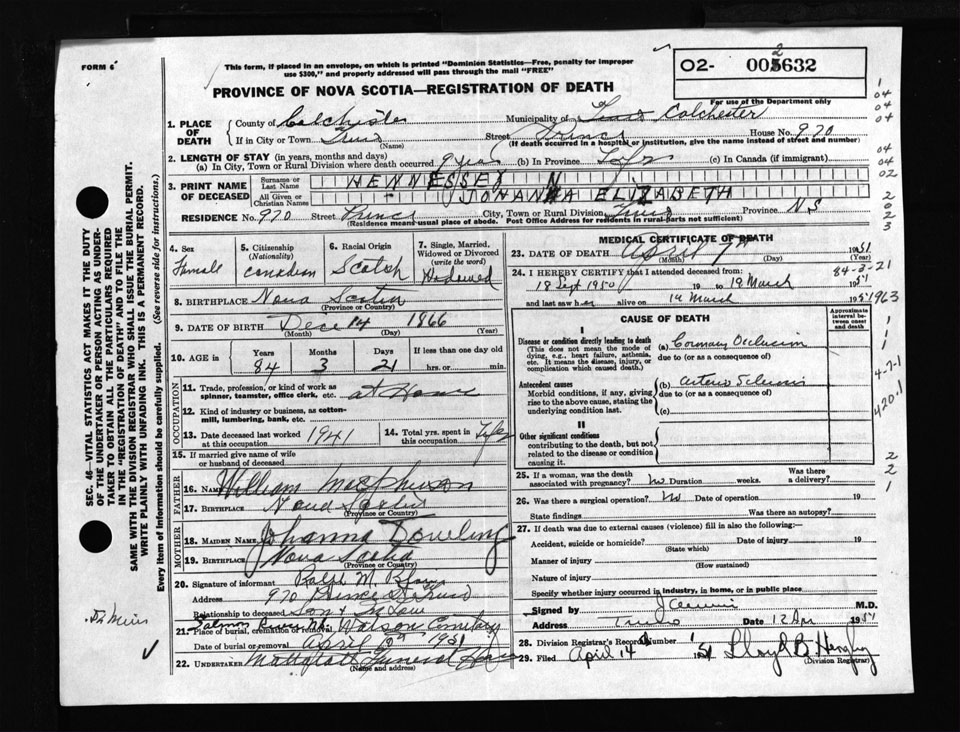 FORM 6
This form, if placed in an envelope, on which is printed "Dominion Statistics—Free, penalty for improper
use $300," and properly addressed will pass through the mail "FREE"
PROVINCE OF NOVA SCOTIA—REGISTRATION OF DEATH
02- 005632
2
For use of the Department only
1. PLACE OF DEATH
County of Colchester Municipality of Truro Colchester
If in City or Town Truro Street Prince House No. 970
(Name) (If death occurred in a hospital or institution, give the name instead of street and number)
2. LENGTH OF STAY (in years, months and days)
(a) In City, Town or Rural Division where death occurred 9 years (b) In Province Life (c) In Canada (if immigrant)
3. PRINT NAME OF DECEASED
Surname or Last Name HENNESSEY N
All Given or Christian Names JOHANNA ELIZABETH
RESIDENCE No. 970 Street Prince City, Town or Rural Division Truro Province N S
(Residence means usual place of abode. Post Office Address for residents in rural parts not sufficient)
4. Sex
Female
5. Citizenship
(Nationality)
Canadian
6. Racial Origin
Scotch
7. Single, Married, Widowed or Divorced
(write the word)
Widowed
8. BIRTHPLACE Nova Scotia
(Province or Country)
9. DATE OF BIRTH Dec 14 1866
(Month) (Day) (Year)
10. AGE in
Years Months Days If less than one day old
84 3 21 hrs. or min.
OCCUPATION
11. Trade, profession, or kind of work as
spinner, teamster, office clerk, etc. at Home
12. Kind of industry or business, as cotton-
mill, lumbering, bank, etc.
13. Date deceased last worked at this occupation 1941
14. Total yrs. spent in this occupation Life
15. If married give name of wife
or husband of deceased
FATHER
16. NAME William Macpherson
17. BIRTHPLACE Nova Scotia
(Province or Country)
MOTHER
18. MAIDEN NAME Johanna Dowling
19. BIRTHPLACE Nova Scotia
(Province or Country)
20. Signature of informant Ralph M.
Address 970 Prince St Truro
Relationship to deceased Son in Law
Salmon River
21. Place of burial, cremation or removal Watson Cemetery
Date of burial or removal April 1951
22. UNDERTAKER Mattatall Funeral
(Name and address)
MEDICAL CERTIFICATE OF DEATH
23. DATE OF DEATH April 7th 1951
(Month) (Day)
84-3-21
24. I HEREBY CERTIFY that I attended deceased from:
18 Sept 1950 to 19 March 1951
and last saw her alive on 19 March 1951
1963
CAUSE OF DEATH
Approximate interval between onset and death
I
Disease or condition directly leading to death
(This does not mean the mode of
dying, e.g., heart failure, asthenia,
etc. It means the disease, injury, or
complication which caused death.)
(a) Coronary Occlusion
due to (or as a consequence of)
Antecedent causes
Morbid conditions, if any, giving
rise to the above cause, stating the
underlying condition last.
(b) Arterio Sclerosis
due to (or as a consequence of)
(c)
4-7-1
420.1
II
Other significant conditions
contributing to the death, but not
related to the disease or condition
causing it.
25. If a woman, was the death
associated with pregnancy? No Duration weeks. Was there
a delivery?
26. Was there a surgical operation? No Date of operation 19
State findings Was there an autopsy?
27. If death was due to external causes (violence) fill in also the following:—
Accident, suicide or homicide? Date of injury 19
(State which)
Manner of injury
(How sustained)
Nature of injury
Specify whether injury occurred in industry, in home, or in public place
Signed by M.D.
Address Truro Date 12 Apr 1951
28. Division Registrar's Record Number
29. Filed April 14 1951 Lloyd B.
(Division Registrar)
SEC. 46—VITAL STATISTICS ACT MAKES IT THE DUTY
OF THE UNDERTAKER OR PERSON ACTING AS UNDER-
TAKER TO OBTAIN ALL THE PARTICULARS REQUIRED
IN THE "REGISTRATION OF DEATH" AND TO FILE THE
SAME WITH THE DIVISION REGISTRAR WHO SHALL ISSUE THE BURIAL PERMIT.
WRITE PLAINLY WITH UNFADING INK. THIS IS A PERMANENT RECORD.
Every item of information should be carefully supplied. (See reverse side for instructions.)